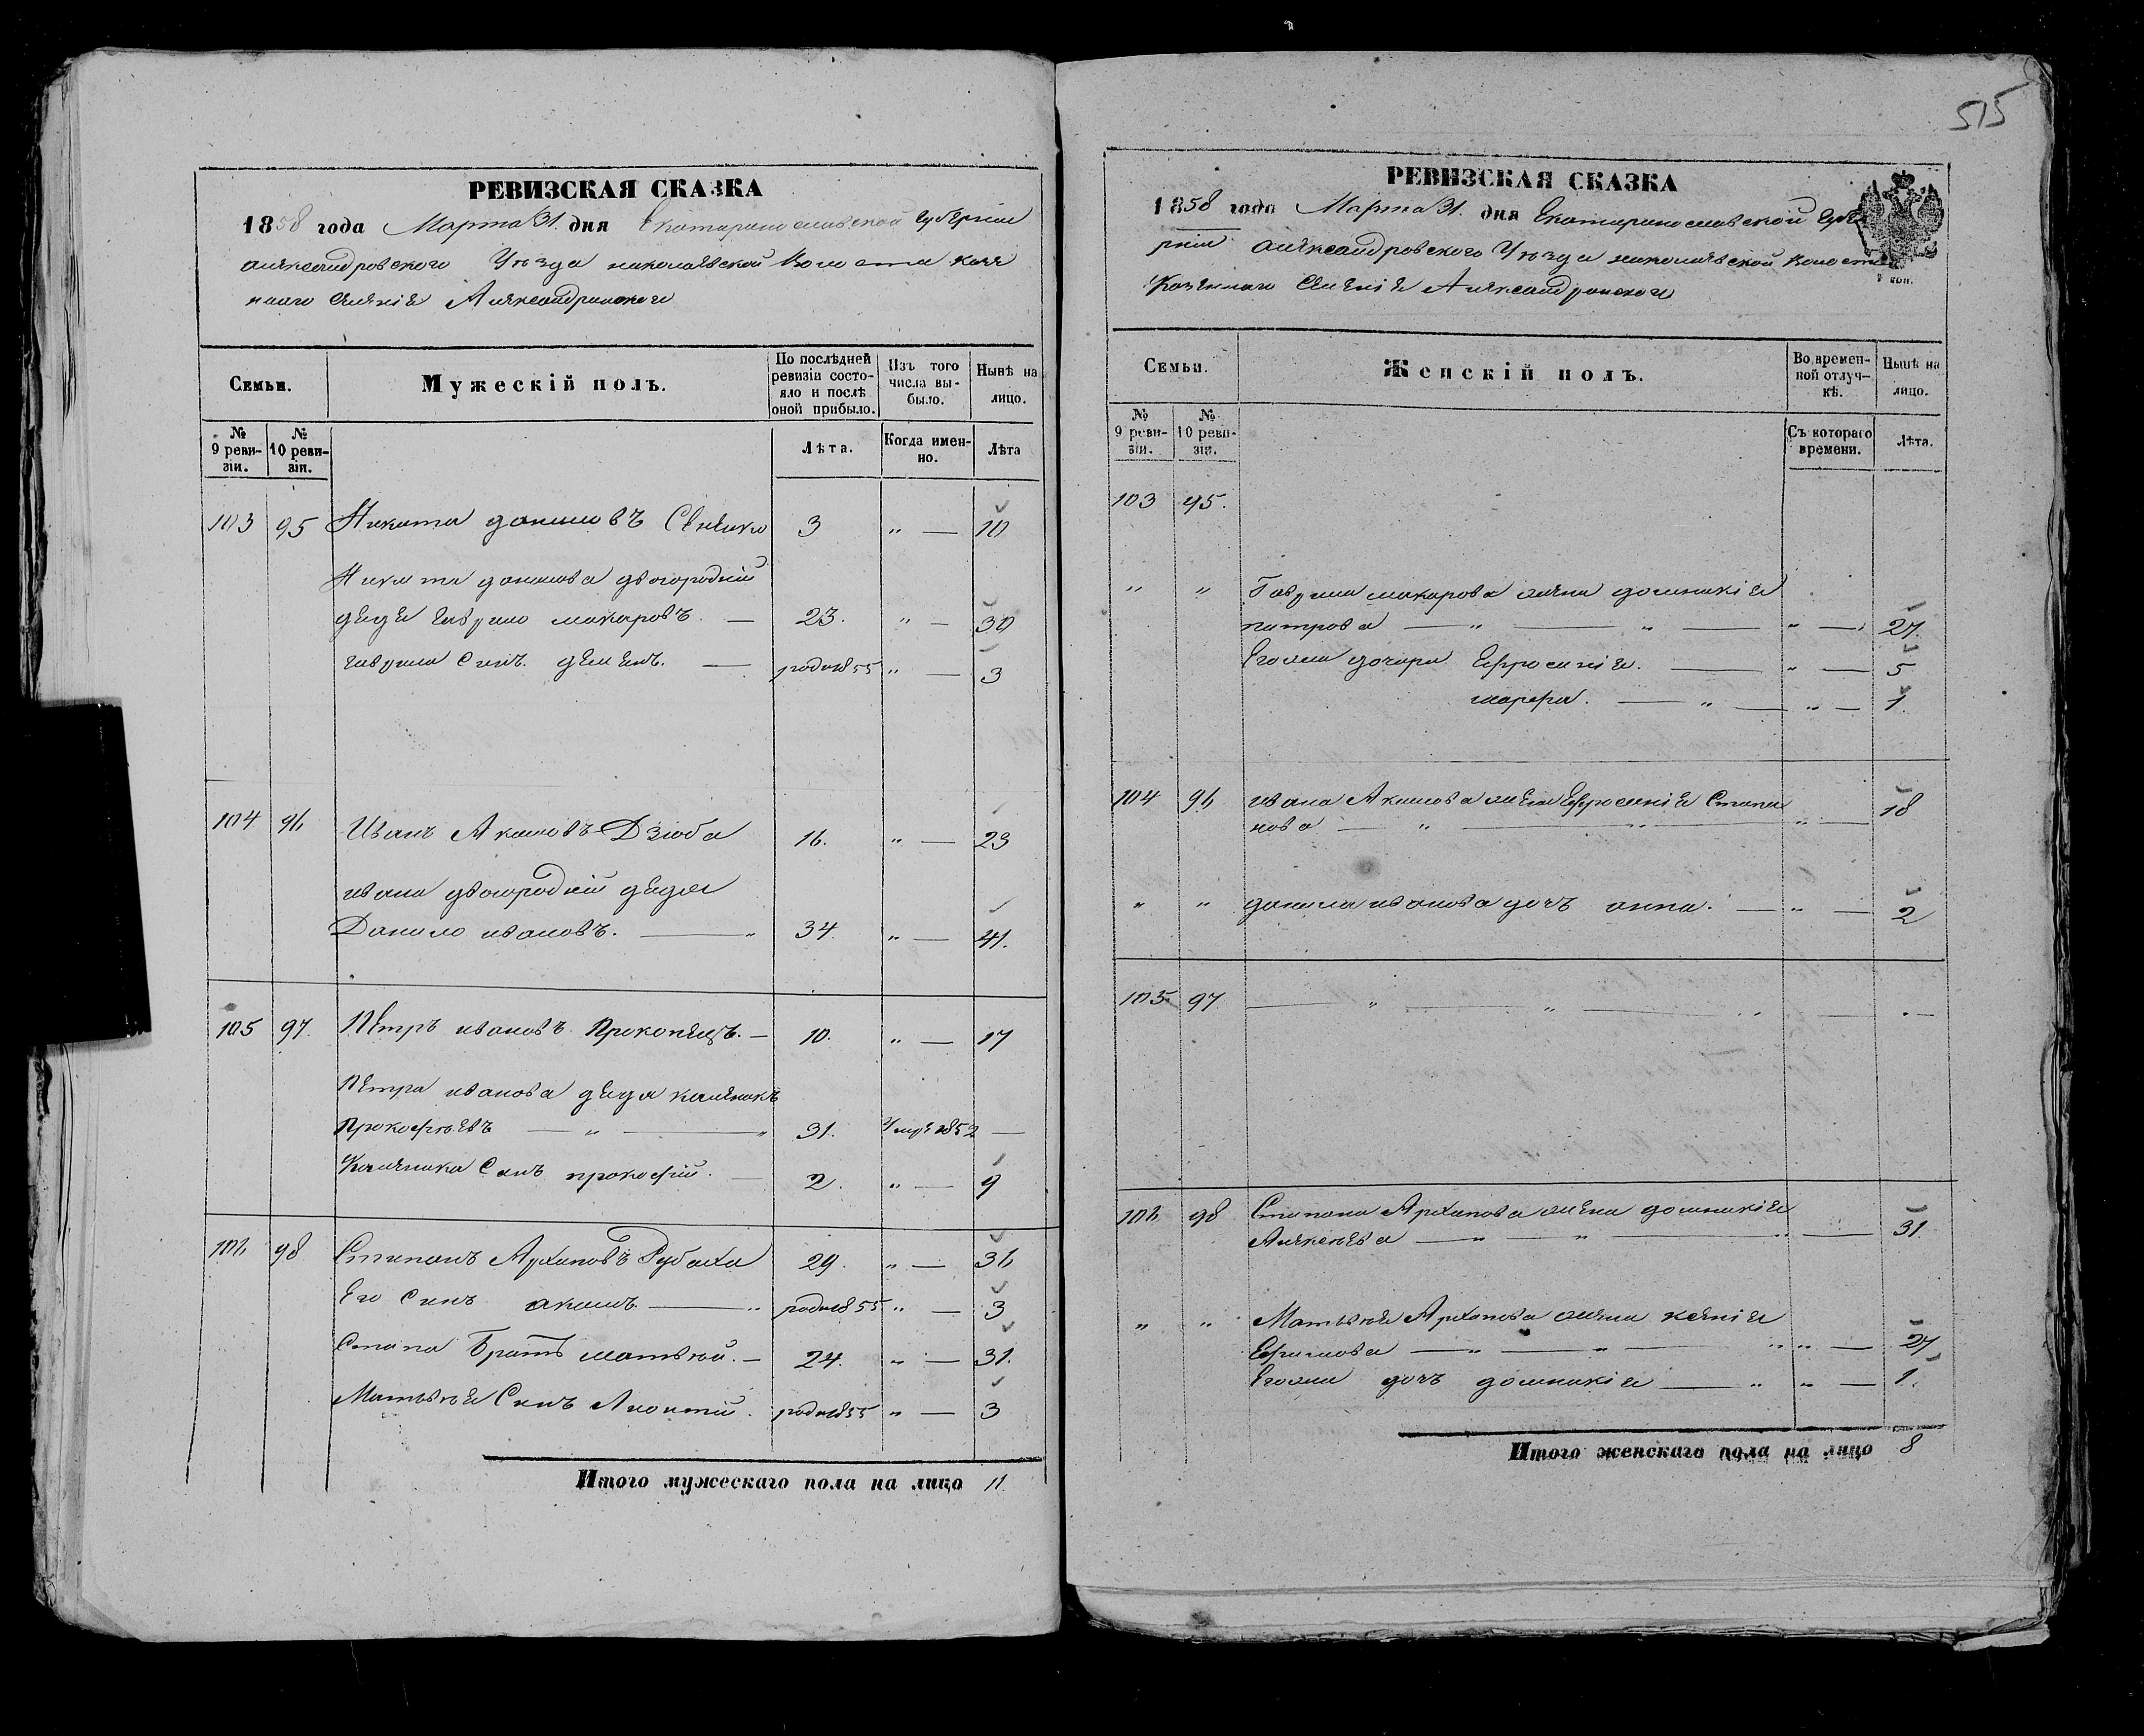 515
РЕВИЗСКАЯ СКАЗКА
1858 года Марта 31. дня Екатеринославской губернии
александровского Уезда николаевской Волости казе
ннаго Селения Александровского
Семьи.
Мужескій полъ.
По послѣдней ревизіи состояло и послѣ оной прибыло.
Изъ того числа выбыло.
Нынѣ на лицо.
№ 9 ревизіи.
№ 10 ревизіи.
Лѣта.
Когда именно.
Лѣта
103 95 Никита даниловъ 3 " — 10
Никиты данилова двоюродній
дядя гаврило макаровъ. — 23. " — 30
гаврила Синъ. демянъ. — родил 855 " — 3
104 96 Иванъ Акимовъ Дзюба 16. " — 23
ивана двоюродній дядя
Данило ивановъ. — " 34 " — 41.
105 97. Петръ ивановъ Прокопецъ. — 10. " — 17
Петра иванова дядя каленикъ
Прокофьевъ — " — " 31. Умре 1852 —
Каленика Синъ прокофій. — 2. " — 9
106 98 Степанъ Архиповъ Рубаха 29. " — 36
Его Синъ акимъ. — " родил 855 " — 3
Степа Братъ матвей. — 24. " — 31.
Матвея Синъ Леонтій. родил 855 " — 3
Итого мужескаго пола на лицо 11.
РЕВИЗСКАЯ СКАЗКА
1858 года Марта 31. дня Екатеринославской губе
рнии александровского Уезда николаевской Волости
Казеннаго Селения Александровского
Семьи.
Женскій полъ.
Во временной отлучкѣ.
Нынѣ на лицо.
№ 9 ревизіи.
№ 10 ревизіи.
Съ котораго времени.
Лѣта.
103 95.
" " Гаврила макарова жена домникия
петрова — " — " — " — 27.
Его жы дочери Ефросиния. — " — 5
марфа. — " — " — 1
104 96 ивана Акимова жена Ефросиния Степа
нова — " — " — " — 18
" " данила иванова дочъ анна. — " — 2
105 97 — " — " — " — . —
106 98 Степана Архипова жена домникия
Алексеева — " — " — " — 31.
" " Матвея Архипова жена ксения
Ефимова — " — " — " " — 27
Его жы дочъ домникия — " " — 1.
Итого женскаго пола на лицо 8